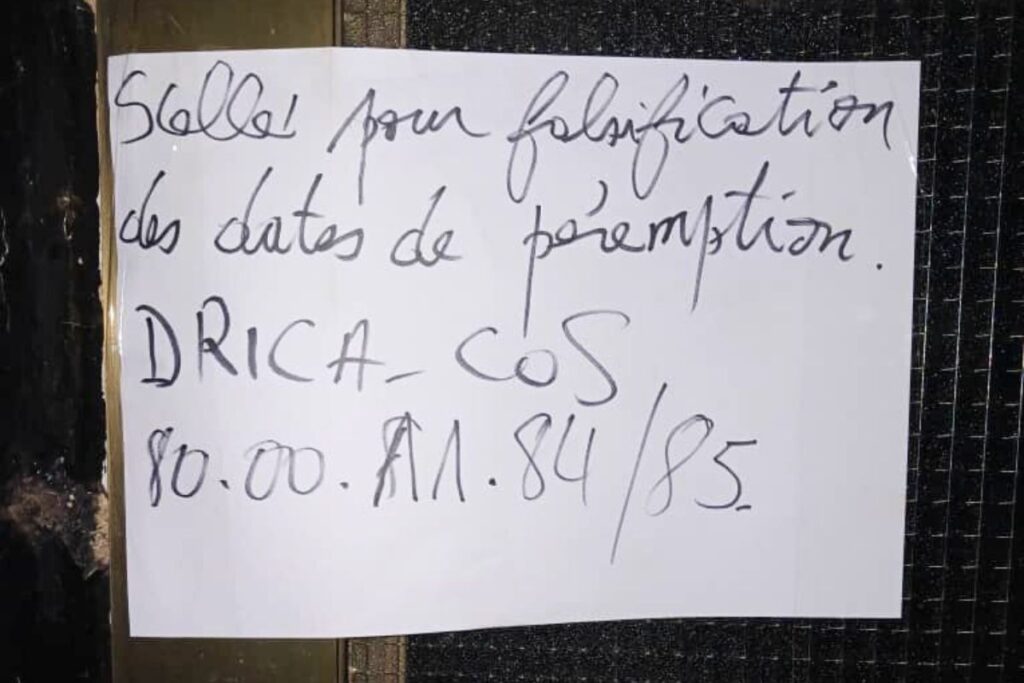 Scellé pour falsification
des dates de péremption.
DRICA-COS
80.00.11.84/85